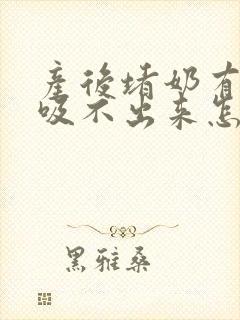 産後堵奶有
吸不出来怎
黑雅桑